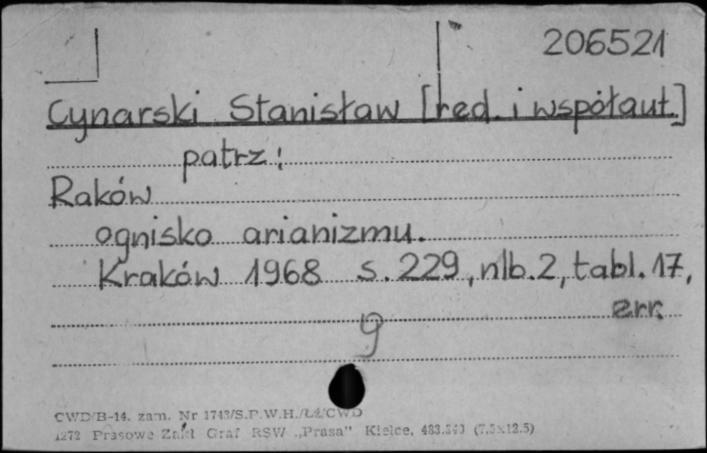 206521
Cynarski Stanisław [red. i współaut.]
patrz:
Raków
ognisko arianizmu.
Kraków 1968 s. 229, nlb. 2, tabl. 17,
err.
g
CWD/B-14. zam. Nr 1743/S.P.W.H./Łź/CWD
1272 Prasowe Zakł Graf RSW „Prasa” Kielce, (7.5x12.5)